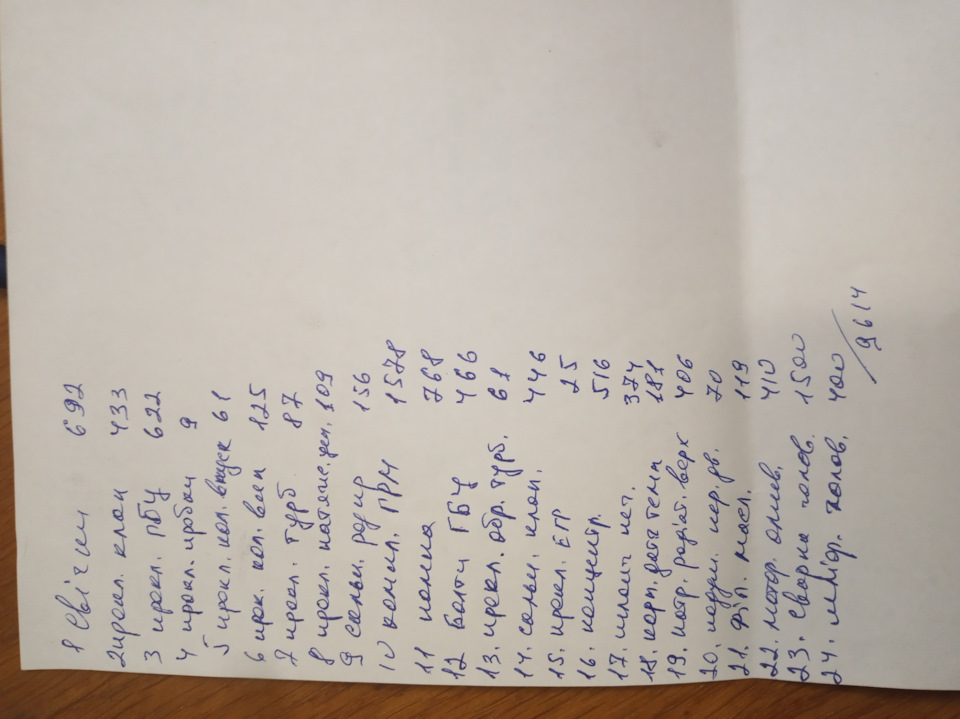 1 Свічки 692
2 прокл. клап 433
3 прокл. ГБЦ 622
4 прокл. пробки 9
5 прокл. кол. впуск 61
6 прок. кол. вып 125
7 прокл. турб. 87
8 прокл. натяж. цеп. 109
9 сальн. розпр 156
10 компл. ГРМ 1578
11 помпа 768
12 Болти ГБЦ 466
13. прокл. обр. турб. 61
14. сальн. клап. 446
15. прокл. ЕГР 25
16. концентр. 516
17. шланг 374
18. корп. дат. темп 181
19. патр. радіат. верх 406
20. подуш. дв. 70
21. філ. масл. 119
22. мотор. олив. 410
23. сварка голов. 1500
24. шліф. голов. 400
9614